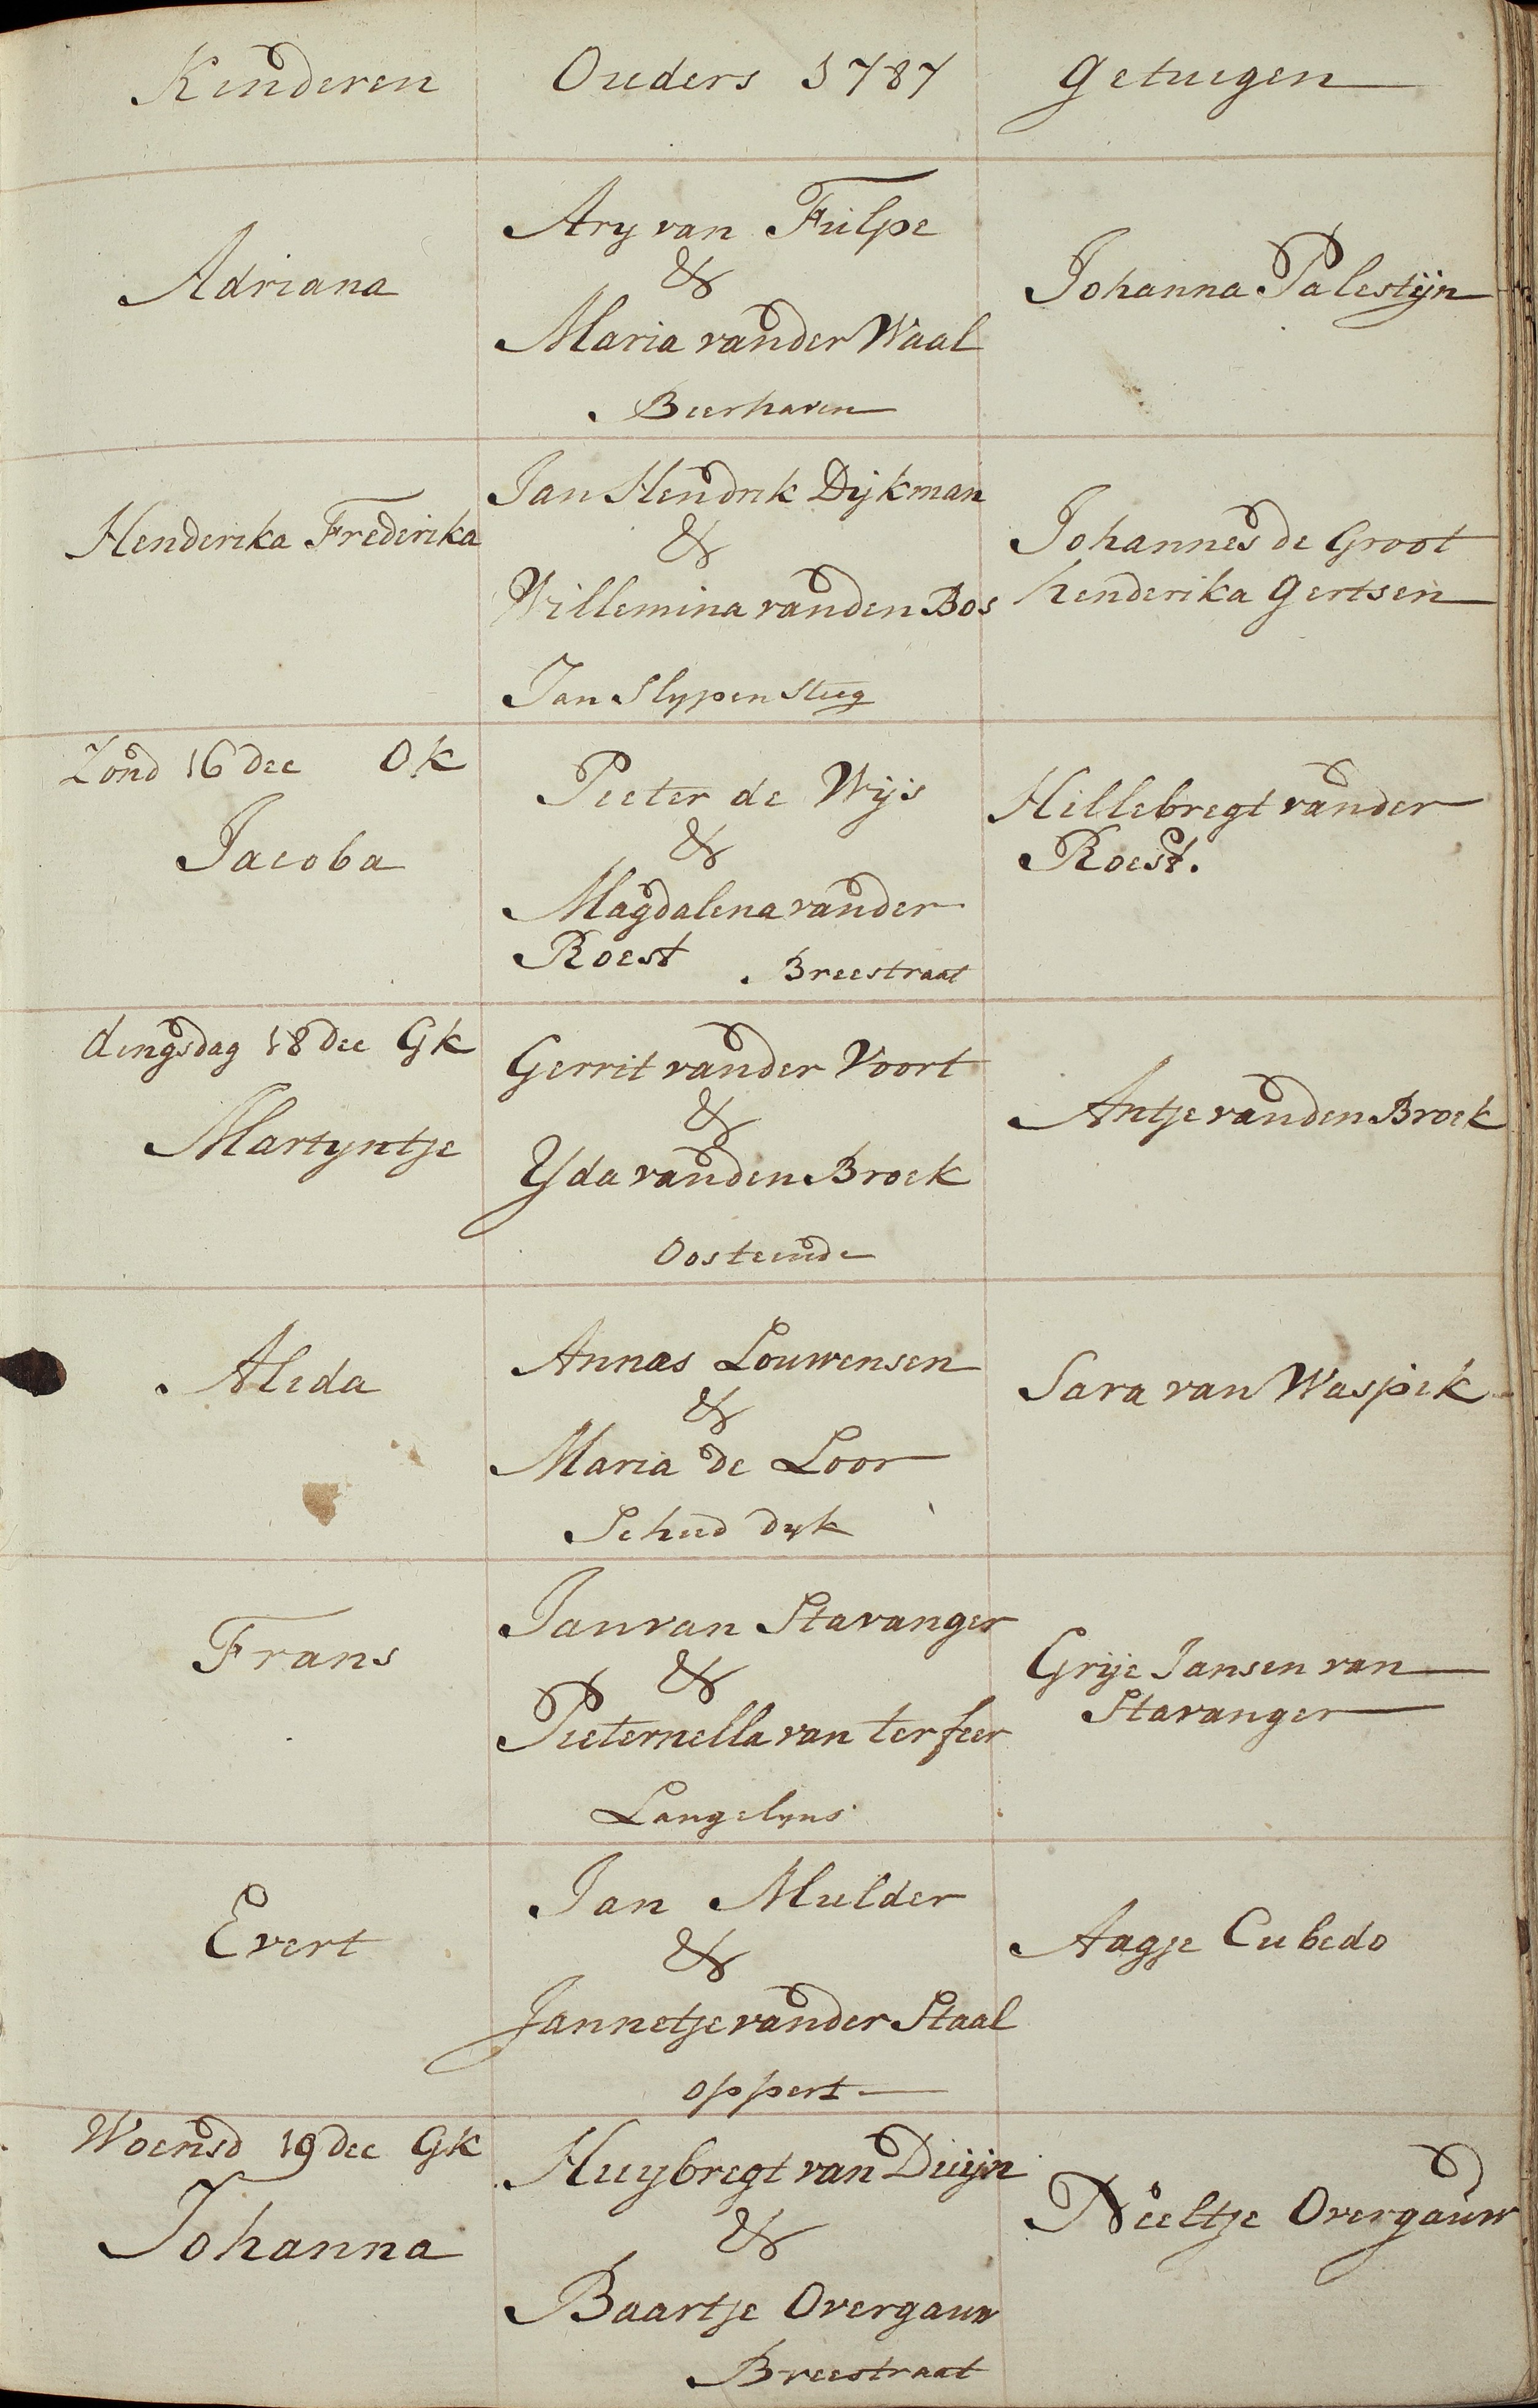 Kinderen
Ouders 1787
getuigen
Adriana
Ary van Fulpe
&
Maria vander Waal
Beerhaven
Johanna Palestijn
Henderika Frederika
Jan Hendrik Dijkman
&
Willemina vanden Bos
Jan Slypen Steeg
Johannes de Groot
henderika gertsen
Zond 16 dec OK
Jacoba
Pieter de Wijs
&
Magdalena vander
Roest Breestraat
Hillebregt vander
Roest.
dingsdag 18 Dec GK
Martyntje
Gerrit vander Voort
&
Yda vanden Broek
Oosteinde
Antje vanden Broek
Aleda
Annas Louwensen
&
Maria de Loor
Schied dyk
Sara van Waspik
Frans
Jan van Stavanger
&
Pieternella van ter feer
Langelyns
Grije Jansen van
Stavanger
Evert
Jan Mulder
&
Jannetje vander Staal
oppert
Aagje Cubedo
Woensd 19 dec GK
Johanna
Huybregt van Duijn
&
Baartje Overgauw
Breestraat
Neeltje Overgauw